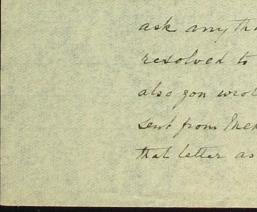 ask any tha
resolved to
also you wrot
sent from
that letter as